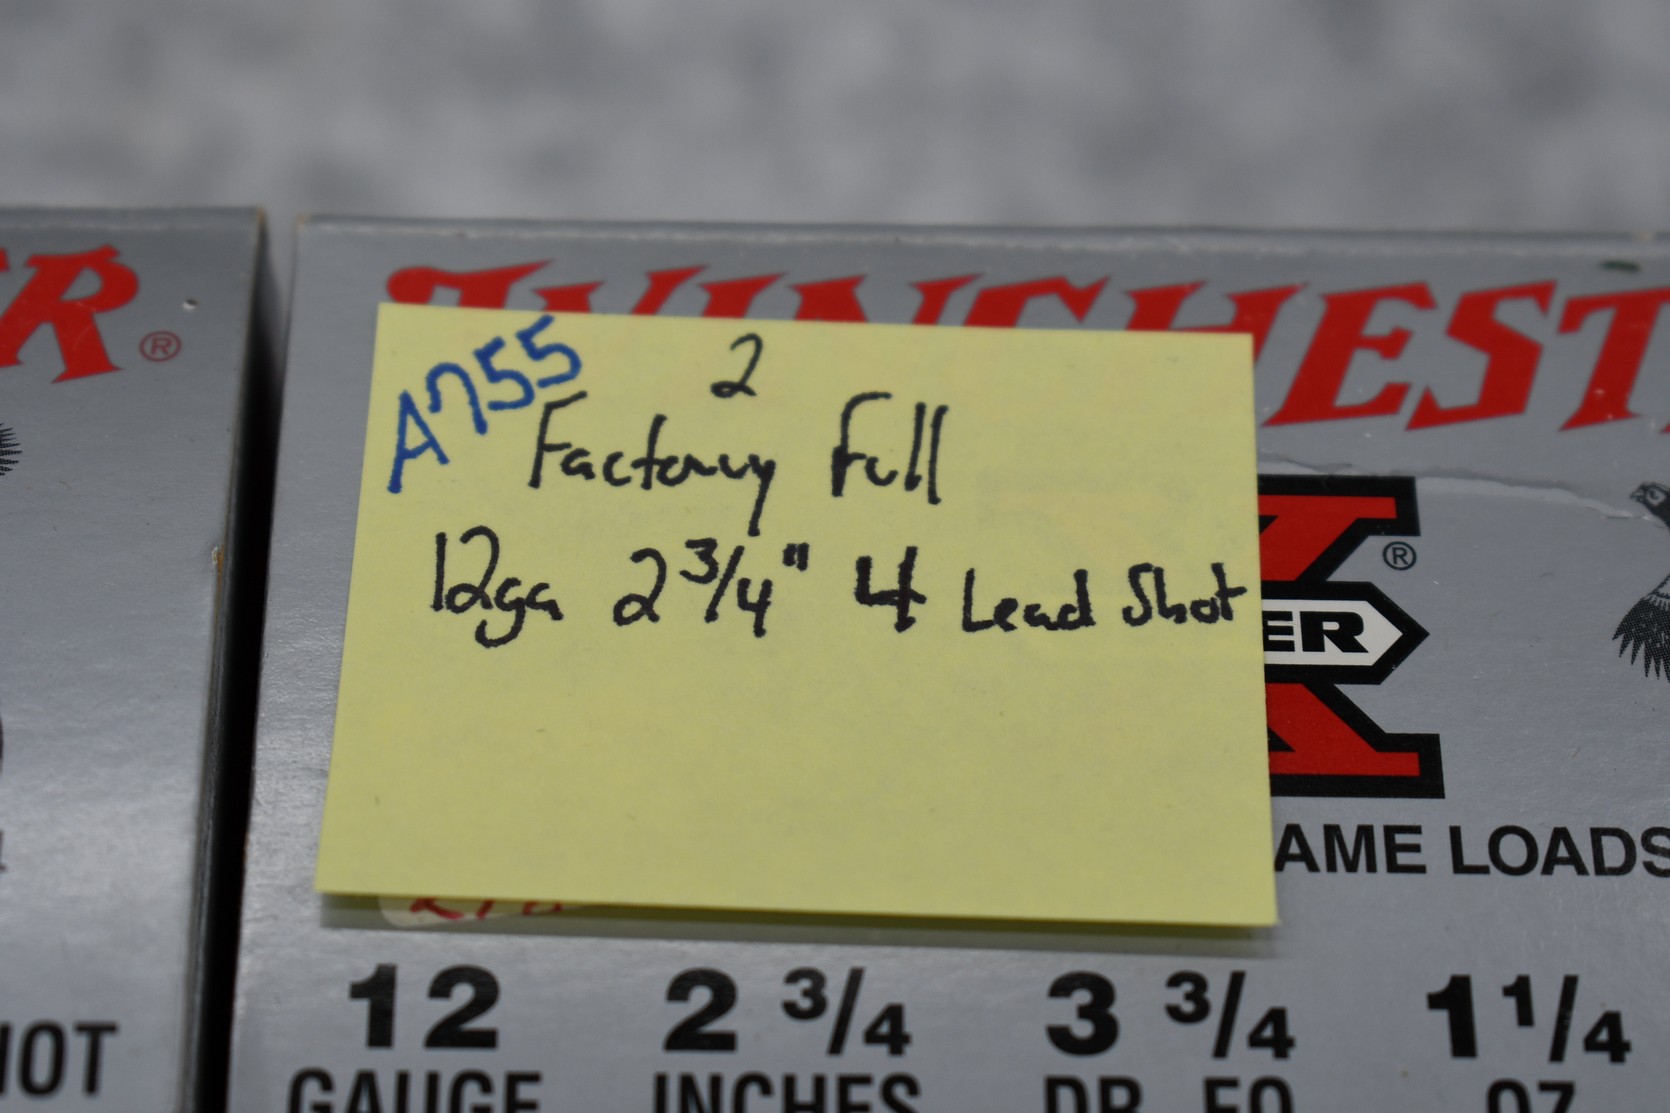 R®
WINCHEST
A755
2
Factory Full
12ga 2 3/4" 4 Lead Shot
®
ER
AME LOADS
12 2 3/4 3 3/4 1 1/4
GAUGE INCHES DR. EQ OZ
HOT